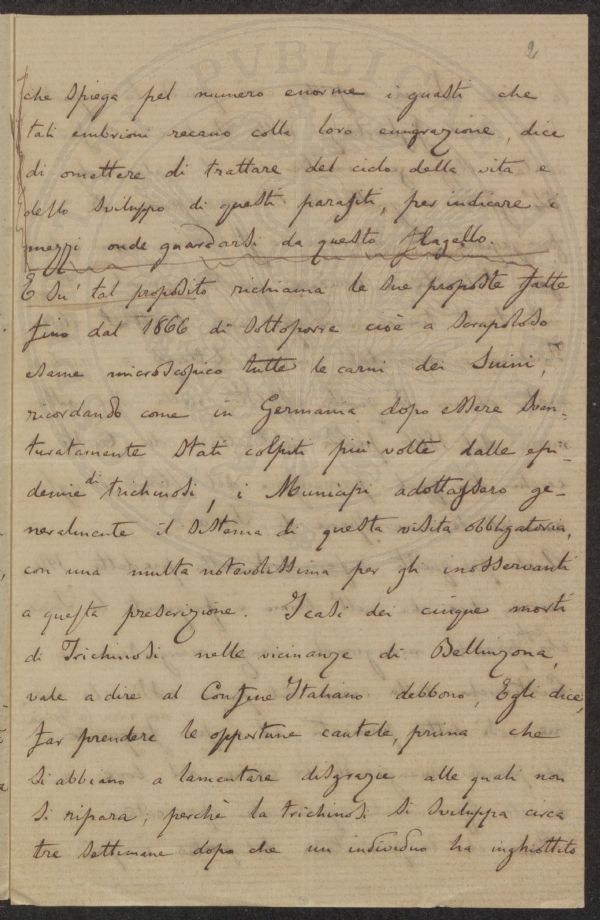 2
che spiega pel numero enorme i guasti che
tali embrioni recano colla loro emigrazione, dice
di omettere di trattare del ciclo della vita e
dello sviluppo di questi parassiti, per indicare i
mezzi onde guardarsi da questo flagello.
E su' tal proposito richiama le sue proposte fatte
fino dal 1866 di sottoporre cioè a scrupoloso
esame microscopico tutte le carni dei Suini,
ricordando come in Germania dopo essere sven-
turatamente stati colpiti più volte dalle epi-
demie di trichinosi, i Municipi adottassero ge-
neralmente il sistema di questa visita obbligatoria,
con una multa notevolissima per gli inosservanti
a questa prescrizione. I casi dei cinque morti
di Trichinosi nelle vicinanze di Bellinzona,
vale a dire al Confine Italiano debbono, Egli dice,
far prendere le opportune cautele, prima che
si abbiano a lamentare disgrazie alle quali non
si ripara; perchè la trichinosi si sviluppa circa
tre settimane dopo che un individuo ha inghiottito
PVBLIC